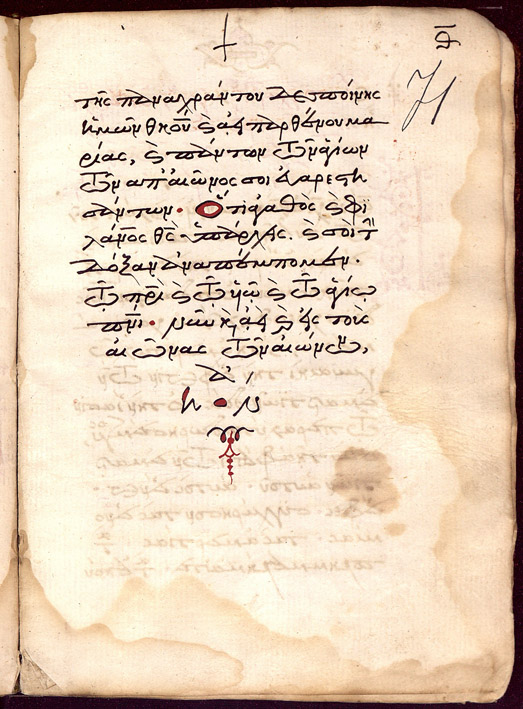 71
τῆς παναχράντου δεσποίνης
ἡμῶν θκου καὶ ἀειπαρθένου μα
ρίας, καὶ πάντων τῶν ἁγίων
τῶν ἀπ' αἰῶνος σοι εὐαρεστη
σάντων· Ὅτι ἀγαθὸς καὶ φι
λάνος θς ὑπάρχεις. καὶ σοὶ τὴν
δόξαν ἀναπέμπομεν·
τῷ πρὶ καὶ τῷ υἱῷ καὶ τῷ ἁγίῳ
πνι· νῦν καὶ ἀεὶ καὶ εἰς τοὺς
αἰῶνας τῶν αἰώνων,
ἀ
μὴν